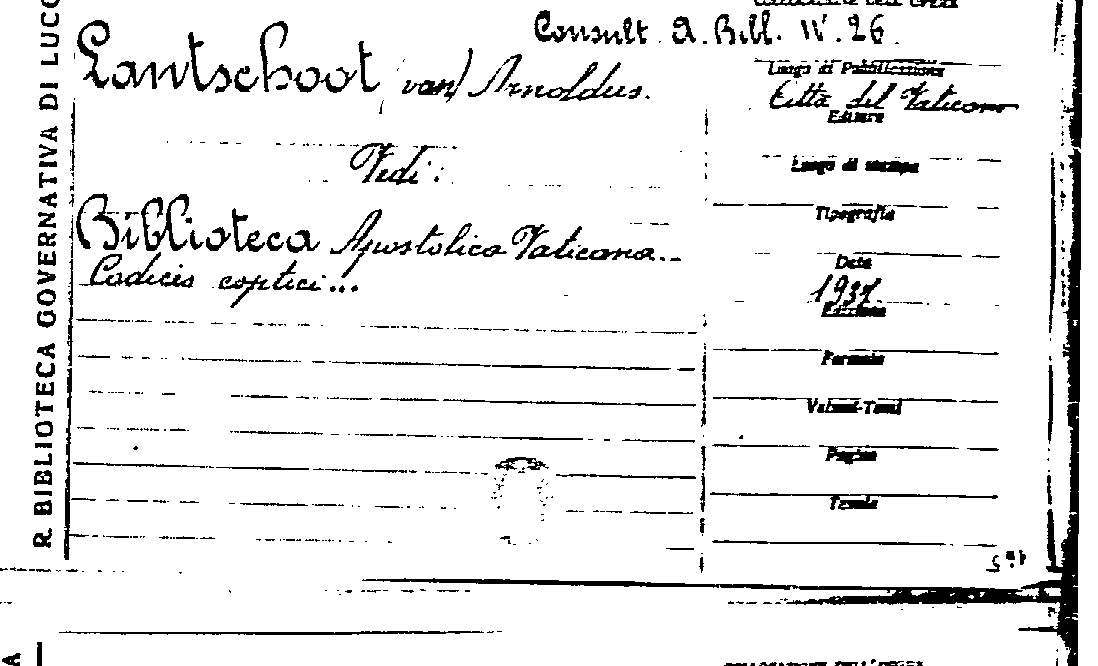 R. BIBLIOTECA GOVERNATIVA DI LUCC
Consult. A. Bibl. IV. 26.
Lantschoot (van) Arnoldus.
Vedi:
Biblioteca Apostolica Vaticana...
Codicis coptici...
Luogo di Pubblicazione
Città del Vaticano
Editore
Luogo di stampa
Tipografia
Data
1937
Edizione
Formato
Volumi-Tomi
Pagine
Tavole
COLLOCAZIONE DELL'OPERA